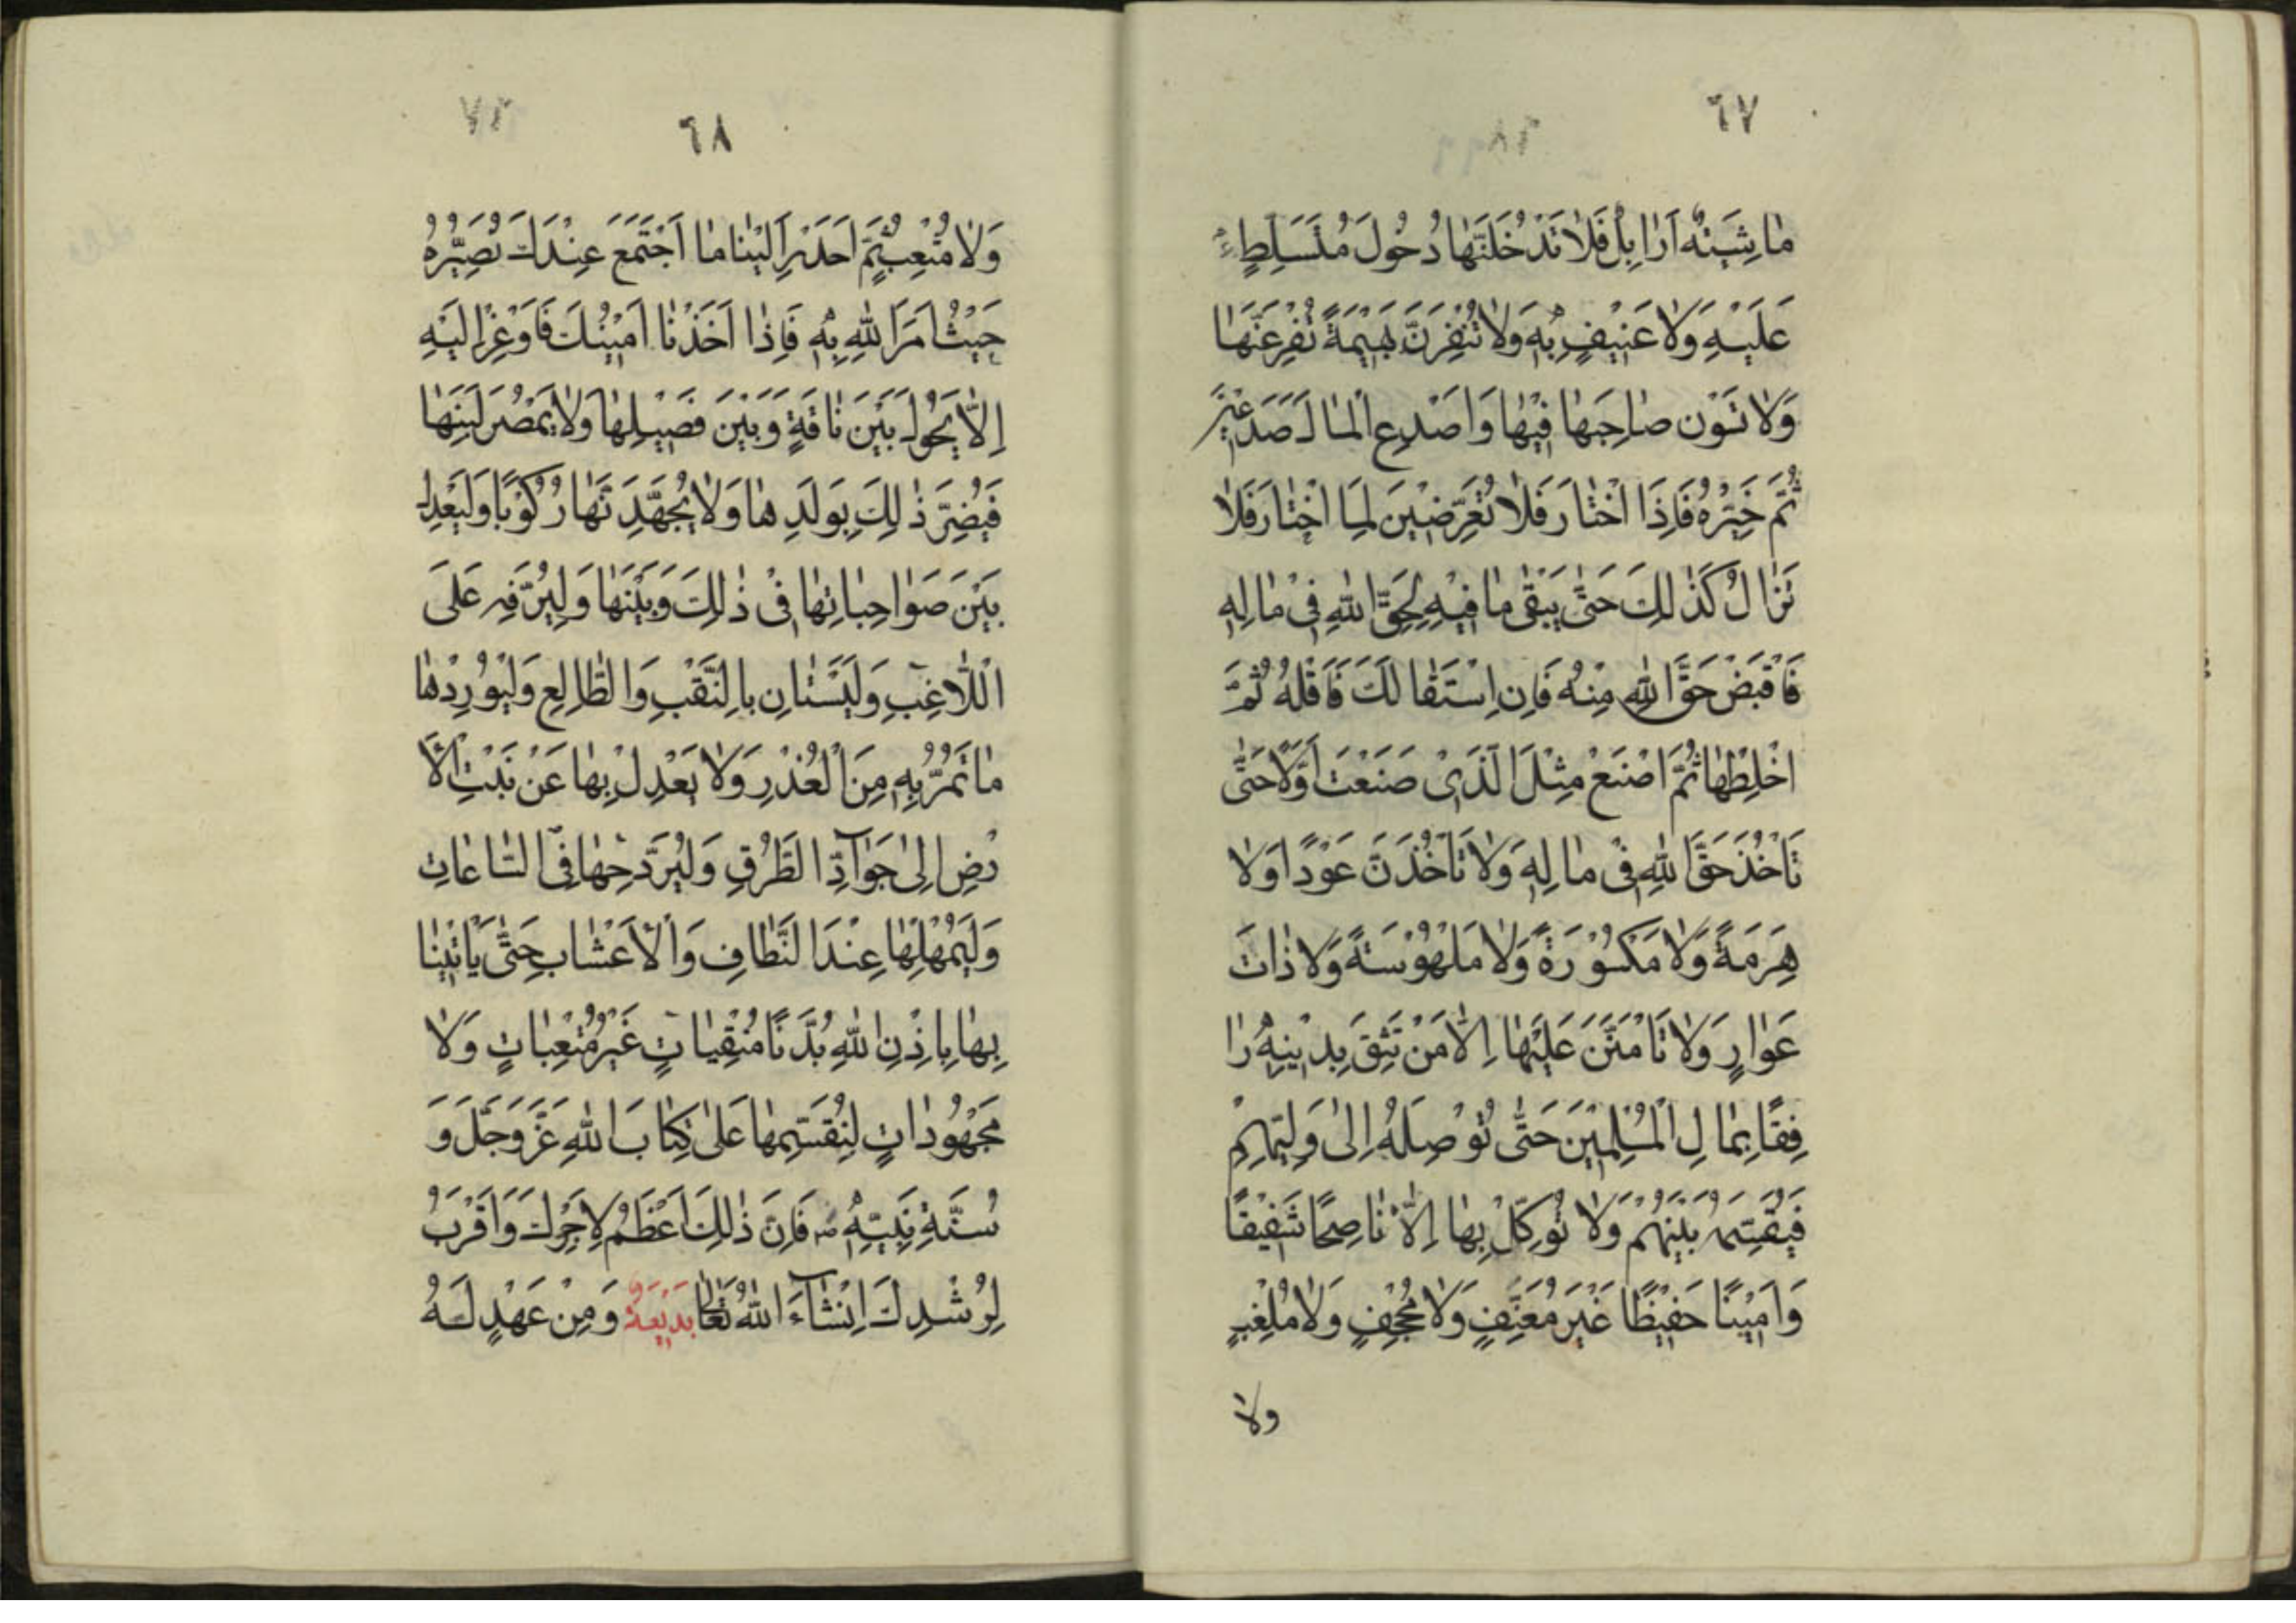 ٦٧
مٰاشِيَتُه اَوْاِبِلٌ فَلاٰ تَدْخُلَنَّهٰا دُخُولَ مُتَسَلِّطٍ
عَلَيْهِ وَلاٰ عَنِيْفٍ بِهٖ وَلاٰ تُنْفِرَنَّ بَهِيْمَةً تُفْزِعَنَّهٰا
وَلاٰ تَسُوْن صٰاحِبَهٰا فِيْهٰا وَاصْدِعِ الْمٰالَ صَدَعَيْنِ
ثُمَّ خَيِّرْهُ فَاِذَا اخْتٰارَ فَلاٰ تُعَرِّضَيْنَ لِمَا اخْتٰارَ فَلاٰ
تَزٰالُ كَذٰلِكَ حَتّٰى يَبْقٰى مٰا فِيْهِ لِحَقِّ اللهِ فِيْ مٰالِهٖ
فَاقْبَضْ حَقَّ اللهِ مِنْهُ فَاِنِ اسْتَقٰالَكَ فَاَقِلْهُ ثُمَّ
اخْلِطْهٰا ثُمَّ اصْنَعْ مِثْلَ الَّذِيْ صَنَعْتَ اَوَّلًا حَتّٰى
تَأْخُذَ حَقَّ اللهِ فِيْ مٰالِهٖ وَلاٰ تَأْخُذَنَّ عَوْدًا وَلاٰ
هَرِمَةً وَلاٰ مَكْسُوْرَةً وَلاٰ مَلْهُوْسَةً وَلاٰ ذٰاتَ
عَوٰارٍ وَلاٰ تَاْمَنَنَّ عَلَيْهٰا اِلاّٰ مَنْ تَثِقَ بِدِيْنِهٖ رٰا
فِقًا بِمٰالِ الْمُسْلِمِيْنَ حَتّٰى تُوْصِلَهُ اِلٰى وَلِيِّهِمْ
فَيُقَسِّمَهُ بَيْنَهُمْ وَلاٰ تُوَكِّلْ بِهٰا اِلاّٰ نٰاصِحًا شَفِيْقًا
وَاَمِيْنًا حَفِيْظًا غَيْرَ مُعَنِّفٍ وَلاٰ مُجْحِفٍ وَلاٰ مُلْغِبٍ
ولا
٦٨
وَلاٰ مُتْعِبٍ ثُمَّ احْدُرْ اِلَيْنٰا مٰا اجْتَمَعَ عِنْدَكَ نُصَيِّرْهُ
حَيْثُ اَمَرَ اللهِ بِهٖ فَاِذٰا اَخَذْنٰا اَمِيْنُكَ فَاَوْعِزْ اِلَيْهِ
اِلاّٰ يَحُوْلَ بَيْنَ نٰاقَةٍ وَبَيْنَ فَصِيْلِهٰا وَلاٰ يَمْصُرَ لَبَنَهٰا
فَيُضِرَّ ذٰلِكَ بِوَلَدِهٰا وَلاٰ يُجْهَدَنَّهٰا رُكُوْبًا وَلْيَعْدِلْ
بَيْنَ صَوٰاحِبٰاتِهٰا فِيْ ذٰلِكَ وَبَيْنَهٰا وَلِيُرَفِّهْ عَلَى
اللّٰاغِبِ وَلْيَسْتٰانِ بِالنَّقْبِ وَالظّٰالِعِ وَلْيُوْرِدْهٰا
مٰا تَمُرُّ بِهٖ مِنَ الْغُدْرِ وَلاٰ يَعْدِلْ بِهٰا عَنْ نَبْتِ الْاَ
رْضِ اِلٰى جَوَآدِّ الطُّرُقِ وَلْيُرَوِّحْهٰا فِى السّٰاعٰاتِ
وَلْيُمْهِلْهٰا عِنْدَ النِّطٰافِ وَالْاَعْشٰابِ حَتّٰى يَأْتِيْنٰا
بِهٰا بِاِذْنِ اللهِ بُدَّنًا مُنْقِيٰاتٍ غَيْرَ مُتْعِبٰاتٍ وَلاٰ
مَجْهُوْدٰاتٍ لِنُقَسِّمَهٰا عَلٰى كِتٰابِ اللهِ عَزَّ وَجَلَّ وَ
سُنَّةِ نَبِيِّهٖ فَاِنَّ ذٰلِكَ اَعْظَمُ لِاَجْرِكَ وَاَقْرَبُ
لِرُشْدِكَ اِنْشَآءَ اللهُ تَعٰالٰى بَدِيْعَةٌ وَمِنْ عَهْدٍ لَهُ